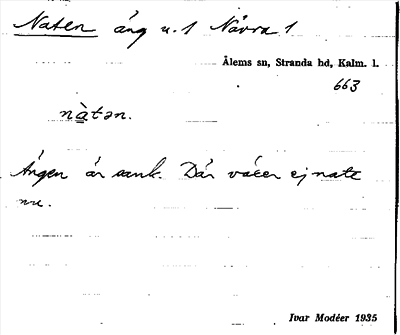 Naten äng u. 1 Nävra 1
Ålems sn, Stranda hd, Kalm. l.
663
nàtən.
Ängen är sank. Där växer ej nate
nu.
Ivar Modéer 1935